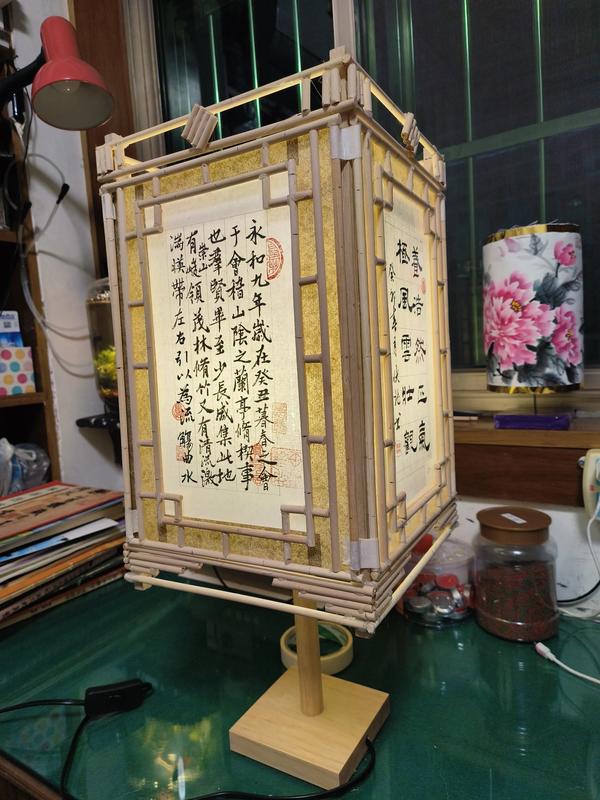 永和九年歲在癸丑暮春之會
于會稽山陰之蘭亭脩稧事
也羣賢畢至少長咸集此地
有崇山峻領茂林脩竹又有清流激
湍暎帶左右引以為流觴曲水
養浩然正氣
極風雲壯觀